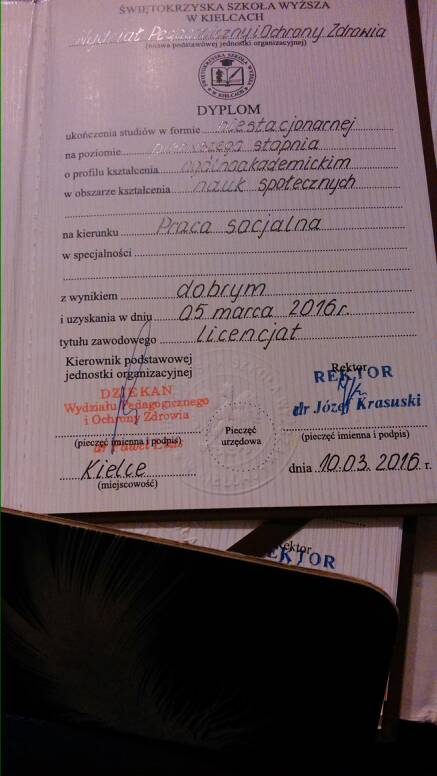 ŚWIĘTOKRZYSKA SZKOŁA WYŻSZA
W KIELCACH
Wydział Pedagogiczny i Ochrony Zdrowia
(nazwa podstawowej jednostki organizacyjnej)
ŚWIĘTOKRZYSKA SZKOŁA WYŻSZA W KIELCACH
DYPLOM
ukończenia studiów w formie niestacjonarnej
na poziomie pierwszego stopnia
o profilu kształcenia ogólnoakademickim
w obszarze kształcenia nauk społecznych
na kierunku Praca socjalna
w specjalności
z wynikiem dobrym
i uzyskania w dniu 05 marca 2016r.
tytułu zawodowego licencjat
Kierownik podstawowej
jednostki organizacyjnej
DZIEKAN
Wydziału Pedagogicznego
i Ochrony Zdrowia
(pieczęć imienna i podpis)
dr Paweł
Pieczęć
urzędowa
Rektor
REKTOR
dr Józef Krasuski
(pieczęć imienna i podpis)
Kielce
(miejscowość)
dnia 10.03.2016r.
Rektor
REKTOR